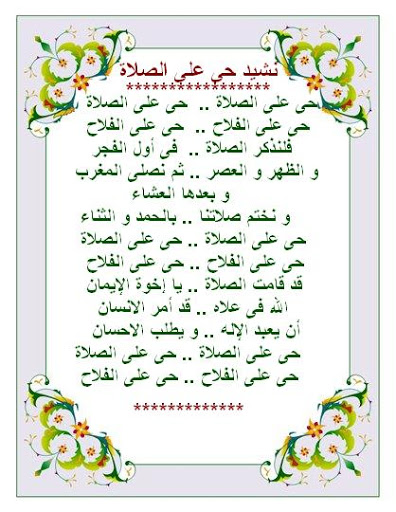 نشيد حى على الصلاة
*****************
حى على الصلاة .. حى على الصلاة
حى على الفلاح .. حى على الفلاح
فلنذكر الصلاة .. فى أول الفجر
و الظهر و العصر .. ثم نصلى المغرب
و بعدها العشاء
و نختم صلاتنا .. بالحمد و الثناء
حى على الصلاة .. حى على الصلاة
حى على الفلاح .. حى على الفلاح
قد قامت الصلاة .. يا إخوة الإيمان
الله فى علاه .. قد أمر الانسان
أن يعبد الإله .. و يطلب الاحسان
حى على الصلاة .. حى على الصلاة
حى على الفلاح .. حى على الفلاح
*************